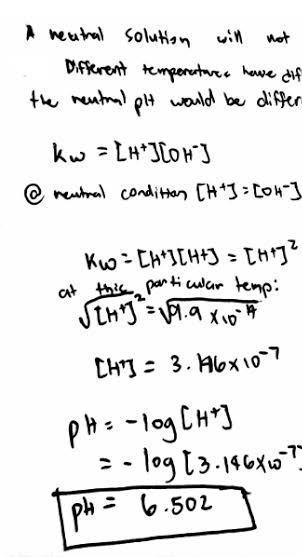 A neutral solution will not
Different temperatures have dif
the neutral pH would be differ
Kw = [H⁺][OH⁻]
@ neutral condition [H⁺] = [OH⁻]
Kw = [H⁺][H⁺] = [H⁺]²
at this particular temp:
√[H⁺]² = √9.9 × 10⁻¹⁴
[H⁺] = 3.146 × 10⁻⁷
pH = -log [H⁺]
= - log [3.146 × 10⁻⁷]
pH = 6.502